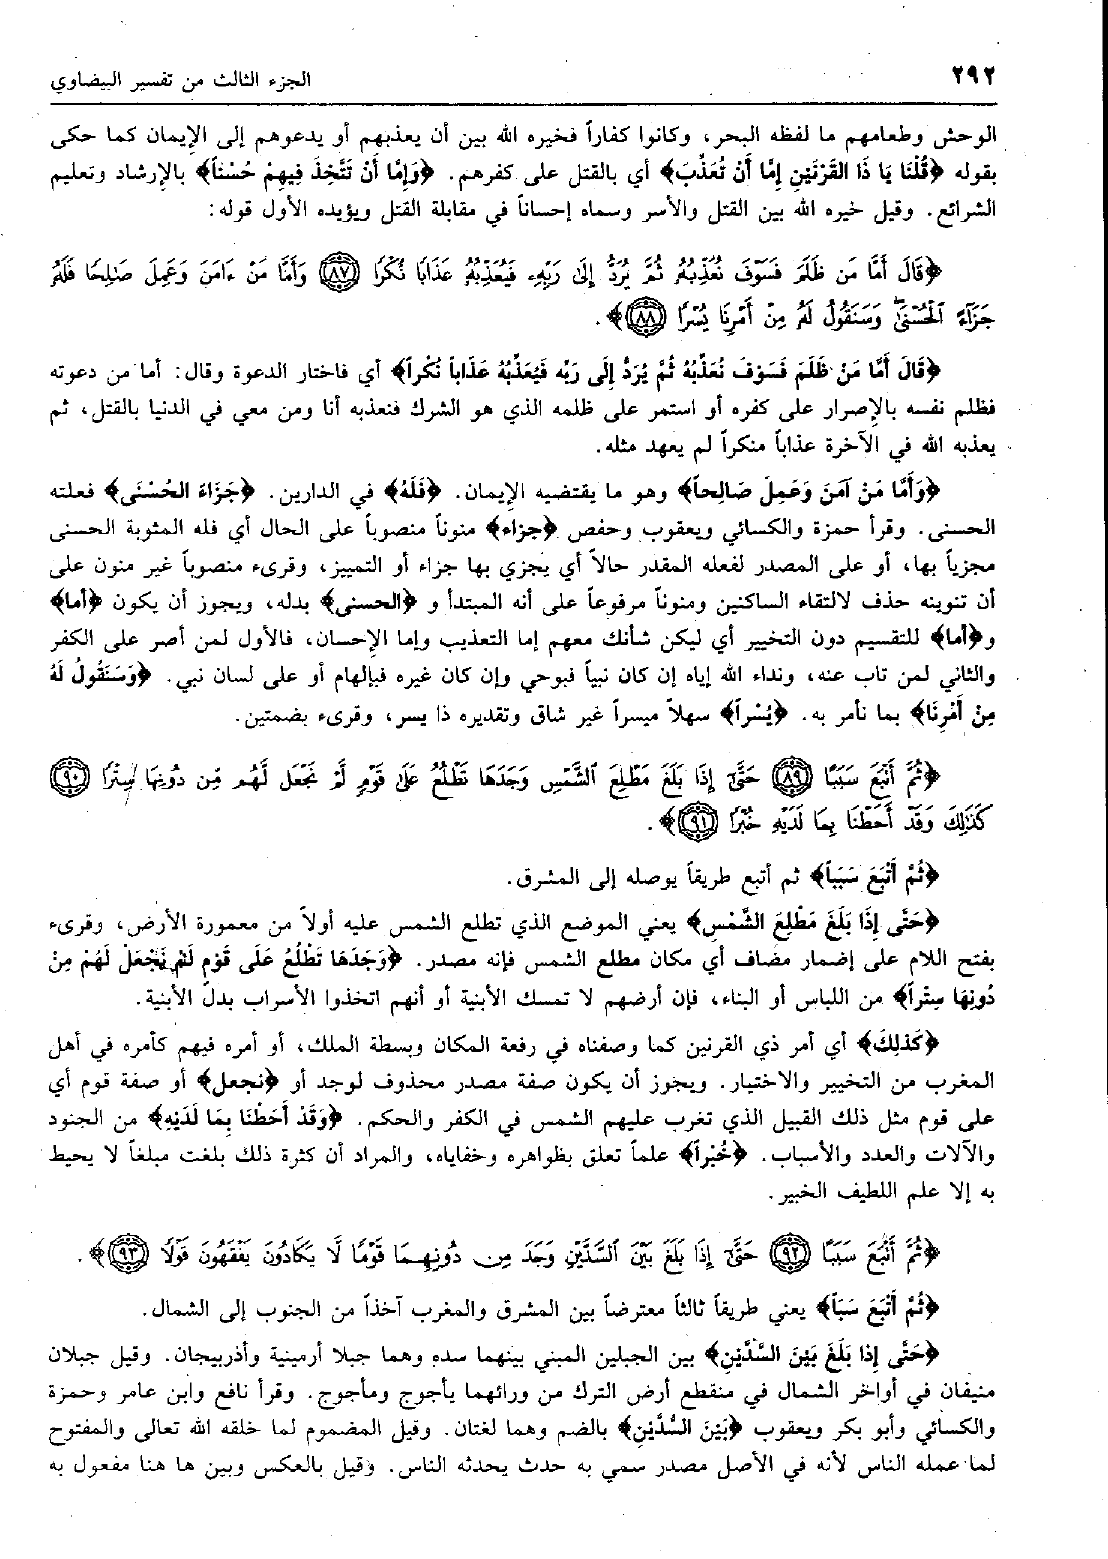 ٢٩٢
الجزء الثالث من تفسير البيضاوي
الوحش وطعامهم ما لفظه البحر، وكانوا كفاراً فخيره الله بين أن يعذبهم أو يدعوهم إلى الإيمان كما حكى
بقوله ﴿قُلْنَا يَا ذَا القَرْنَينِ إِمَّا أَنْ تُعَذِّبَ﴾ أي بالقتل على كفرهم. ﴿وَإِمَّا أَنْ تَتَّخِذَ فِيهِمْ حُسْناً﴾ بالإرشاد وتعليم
الشرائع. وقيل خيره الله بين القتل والأسر وسماه إحساناً في مقابلة القتل ويؤيده الأول قوله:
﴿قَالَ أَمَّا مَن ظَلَمَ فَسَوْفَ نُعَذِّبُهُ ثُمَّ يُرَدُّ إِلَى رَبِّهِ فَيُعَذِّبُهُ عَذَابًا نُكْرًا ۝٨٧ وَأَمَّا مَنْ ءَامَنَ وَعَمِلَ صَٰلِحًا فَلَهُ
جَزَآءً ٱلْحُسْنَىٰ وَسَنَقُولُ لَهُ مِنْ أَمْرِنَا يُسْرًا ۝٨٨﴾.
﴿قَالَ أَمَّا مَنْ ظَلَمَ فَسَوْفَ نُعَذِّبُهُ ثُمَّ يُرَدُّ إِلَى رَبِّه فَيُعَذِّبُهُ عَذَاباً نُكْراً﴾ أي فاختار الدعوة وقال: أما من دعوته
فظلم نفسه بالإصرار على كفره أو استمر على ظلمه الذي هو الشرك فنعذبه أنا ومن معي في الدنيا بالقتل، ثم
يعذبه الله في الآخرة عذاباً منكراً لم يعهد مثله.
﴿وَأَمَّا مَنْ آمَنَ وَعَمِلَ صَالِحاً﴾ وهو ما يقتضيه الإيمان. ﴿فَلَهُ﴾ في الدارين. ﴿جَزَاءَ الحُسْنَى﴾ فعلته
الحسنى. وقرأ حمزة والكسائي ويعقوب وحفص ﴿جزاء﴾ منوناً منصوباً على الحال أي فله المثوبة الحسنى
مجزياً بها، أو على المصدر لفعله المقدر حالاً أي يجزي بها جزاء أو التمييز، وقرىء منصوباً غير منون على
أن تنوينه حذف لالتقاء الساكنين ومنوناً مرفوعاً على أنه المبتدأ و ﴿الحسنى﴾ بدله، ويجوز أن يكون ﴿أما﴾
و﴿أما﴾ للتقسيم دون التخيير أي ليكن شأنك معهم إما التعذيب وإما الإحسان، فالأول لمن أصر على الكفر
والثاني لمن تاب عنه، ونداء الله إياه إن كان نبياً فبوحي وإن كان غيره فبإلهام أو على لسان نبي. ﴿وَسَنَقُولُ لَهُ
مِنْ أَمْرِنَا﴾ بما نأمر به. ﴿يُسْراً﴾ سهلاً ميسراً غير شاق وتقديره ذا يسر، وقرىء بضمتين.
﴿ثُمَّ أَتْبَعَ سَبَبًا ۝٨٩ حَتَّىٰ إِذَا بَلَغَ مَطْلِعَ ٱلشَّمْسِ وَجَدَهَا تَطْلُعُ عَلَىٰ قَوْمٍ لَّمْ نَجْعَل لَّهُم مِّن دُونِهَا سِتْرًا ۝٩٠
كَذَٰلِكَ وَقَدْ أَحَطْنَا بِمَا لَدَيْهِ خُبْرًا ۝٩١﴾.
﴿ثُمَّ أَتْبَعَ سَبَباً﴾ ثم أتبع طريقاً يوصله إلى المشرق.
﴿حَتَّى إِذَا بَلَغَ مَطْلِعَ الشَّمْسِ﴾ يعني الموضع الذي تطلع الشمس عليه أولاً من معمورة الأرض، وقرىء
بفتح اللام على إضمار مضاف أي مكان مطلع الشمس فإنه مصدر. ﴿وَجَدَهَا تَطْلُعُ عَلَى قَوْمٍ لَمْ نَجْعَلْ لَهُمْ مِنْ
دُونِهَا سِتْراً﴾ من اللباس أو البناء، فإن أرضهم لا تمسك الأبنية أو أنهم اتخذوا الأسراب بدل الأبنية.
﴿كَذَلِكَ﴾ أي أمر ذي القرنين كما وصفناه في رفعة المكان وبسطة الملك، أو أمره فيهم كأمره في أهل
المغرب من التخيير والاختيار. ويجوز أن يكون صفة مصدر محذوف لوجد أو ﴿نجعل﴾ أو صفة قوم أي
على قوم مثل ذلك القبيل الذي تغرب عليهم الشمس في الكفر والحكم. ﴿وَقَدْ أَحَطْنَا بِمَا لَدَيْهِ﴾ من الجنود
والآلات والعدد والأسباب. ﴿خُبْراً﴾ علماً تعلق بظواهره وخفاياه، والمراد أن كثرة ذلك بلغت مبلغاً لا يحيط
به إلا علم اللطيف الخبير.
﴿ثُمَّ أَتْبَعَ سَبَبًا ۝٩٢ حَتَّىٰ إِذَا بَلَغَ بَيْنَ ٱلسَّدَّيْنِ وَجَدَ مِن دُونِهِمَا قَوْمًا لَّا يَكَادُونَ يَفْقَهُونَ قَوْلًا ۝٩٣﴾.
﴿ثُمَّ أَتْبَعَ سَبَاً﴾ يعني طريقاً ثالثاً معترضاً بين المشرق والمغرب آخذاً من الجنوب إلى الشمال.
﴿حَتَّى إِذَا بَلَغَ بَيْنَ السَّدَّيْنِ﴾ بين الجبلين المبني بينهما سده وهما جبلا أرمينية وأذربيجان. وقيل جبلان
منيفان في أواخر الشمال في منقطع أرض الترك من ورائهما يأجوج ومأجوج. وقرأ نافع وابن عامر وحمزة
والكسائي وأبو بكر ويعقوب ﴿بَيْنَ السُّدَّيْنِ﴾ بالضم وهما لغتان. وقيل المضموم لما خلقه الله تعالى والمفتوح
لما عمله الناس لأنه في الأصل مصدر سمي به حدث يحدثه الناس. وقيل بالعكس وبين ها هنا مفعول به